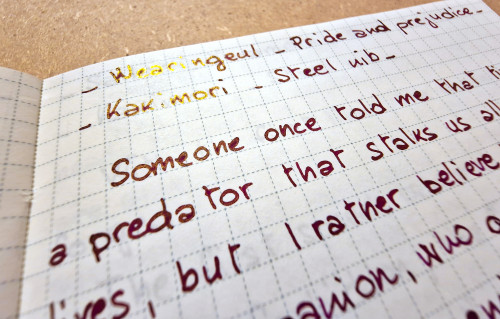 - Wearingeul - Pride and prejudice -
- Kakimori - Steel nib -
Someone once told me that
a predator that stalks us
lives, but I rather believe
who